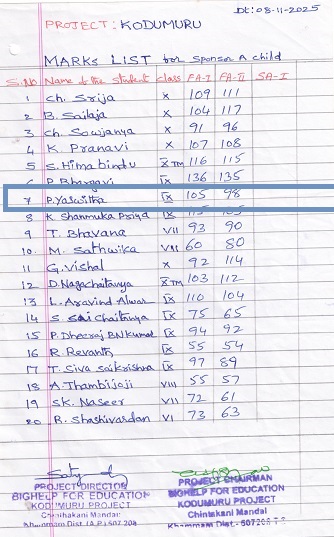 Dt: 08-11-2025
PROJECT: KODUMURU
MARKS LIST for Sponsor A child
S.No Name of the student class FA-I FA-II SA-I
1 Ch. Srija X 109 111
2 B. Sailaja X 104 117
3 Ch. Soujanya X 91 96
4 K. Pranavi X 107 108
5 S. Himabindu X TM 116 115
6 P. Bhargavi IX 136 135
7 P. Yaswitha IX 105 98
8 K Shanmuka Priya IX 115 105
9 T. Bhavana VII 93 90
10. M. Sathwika VII 60 80
11 G. Vishal X 92 114
12 D. Nagachaitanya X TM 103 112
13 L. Aravind Alwar IX 110 104
14 S. Sai chaitanya IX 75 65
15 P. Dheeraj B.N Kumar IX 94 92
16 R. Revanth IX 55 54
17 T. Siva saikrishna IX 97 89
18 A. Thambijoji VIII 55 57
19 SK. Naseer VII 72 61
20 R. Shashivardan VI 73 63
PROJECT DIRECTOR
BIGHELP FOR EDUCATION
KODUMURU PROJECT
Mandal
Khammam Dist
PROJECT CHAIRMAN
BIGHELP FOR EDUCATION
KODUMURU PROJECT
Chintakani Mandal
Khammam Dist.